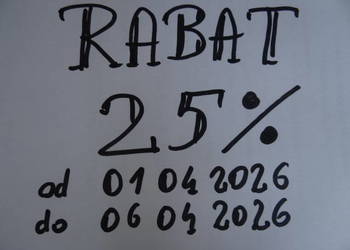 RABAT
25%
od 01 04 2026
do 06 04 2026